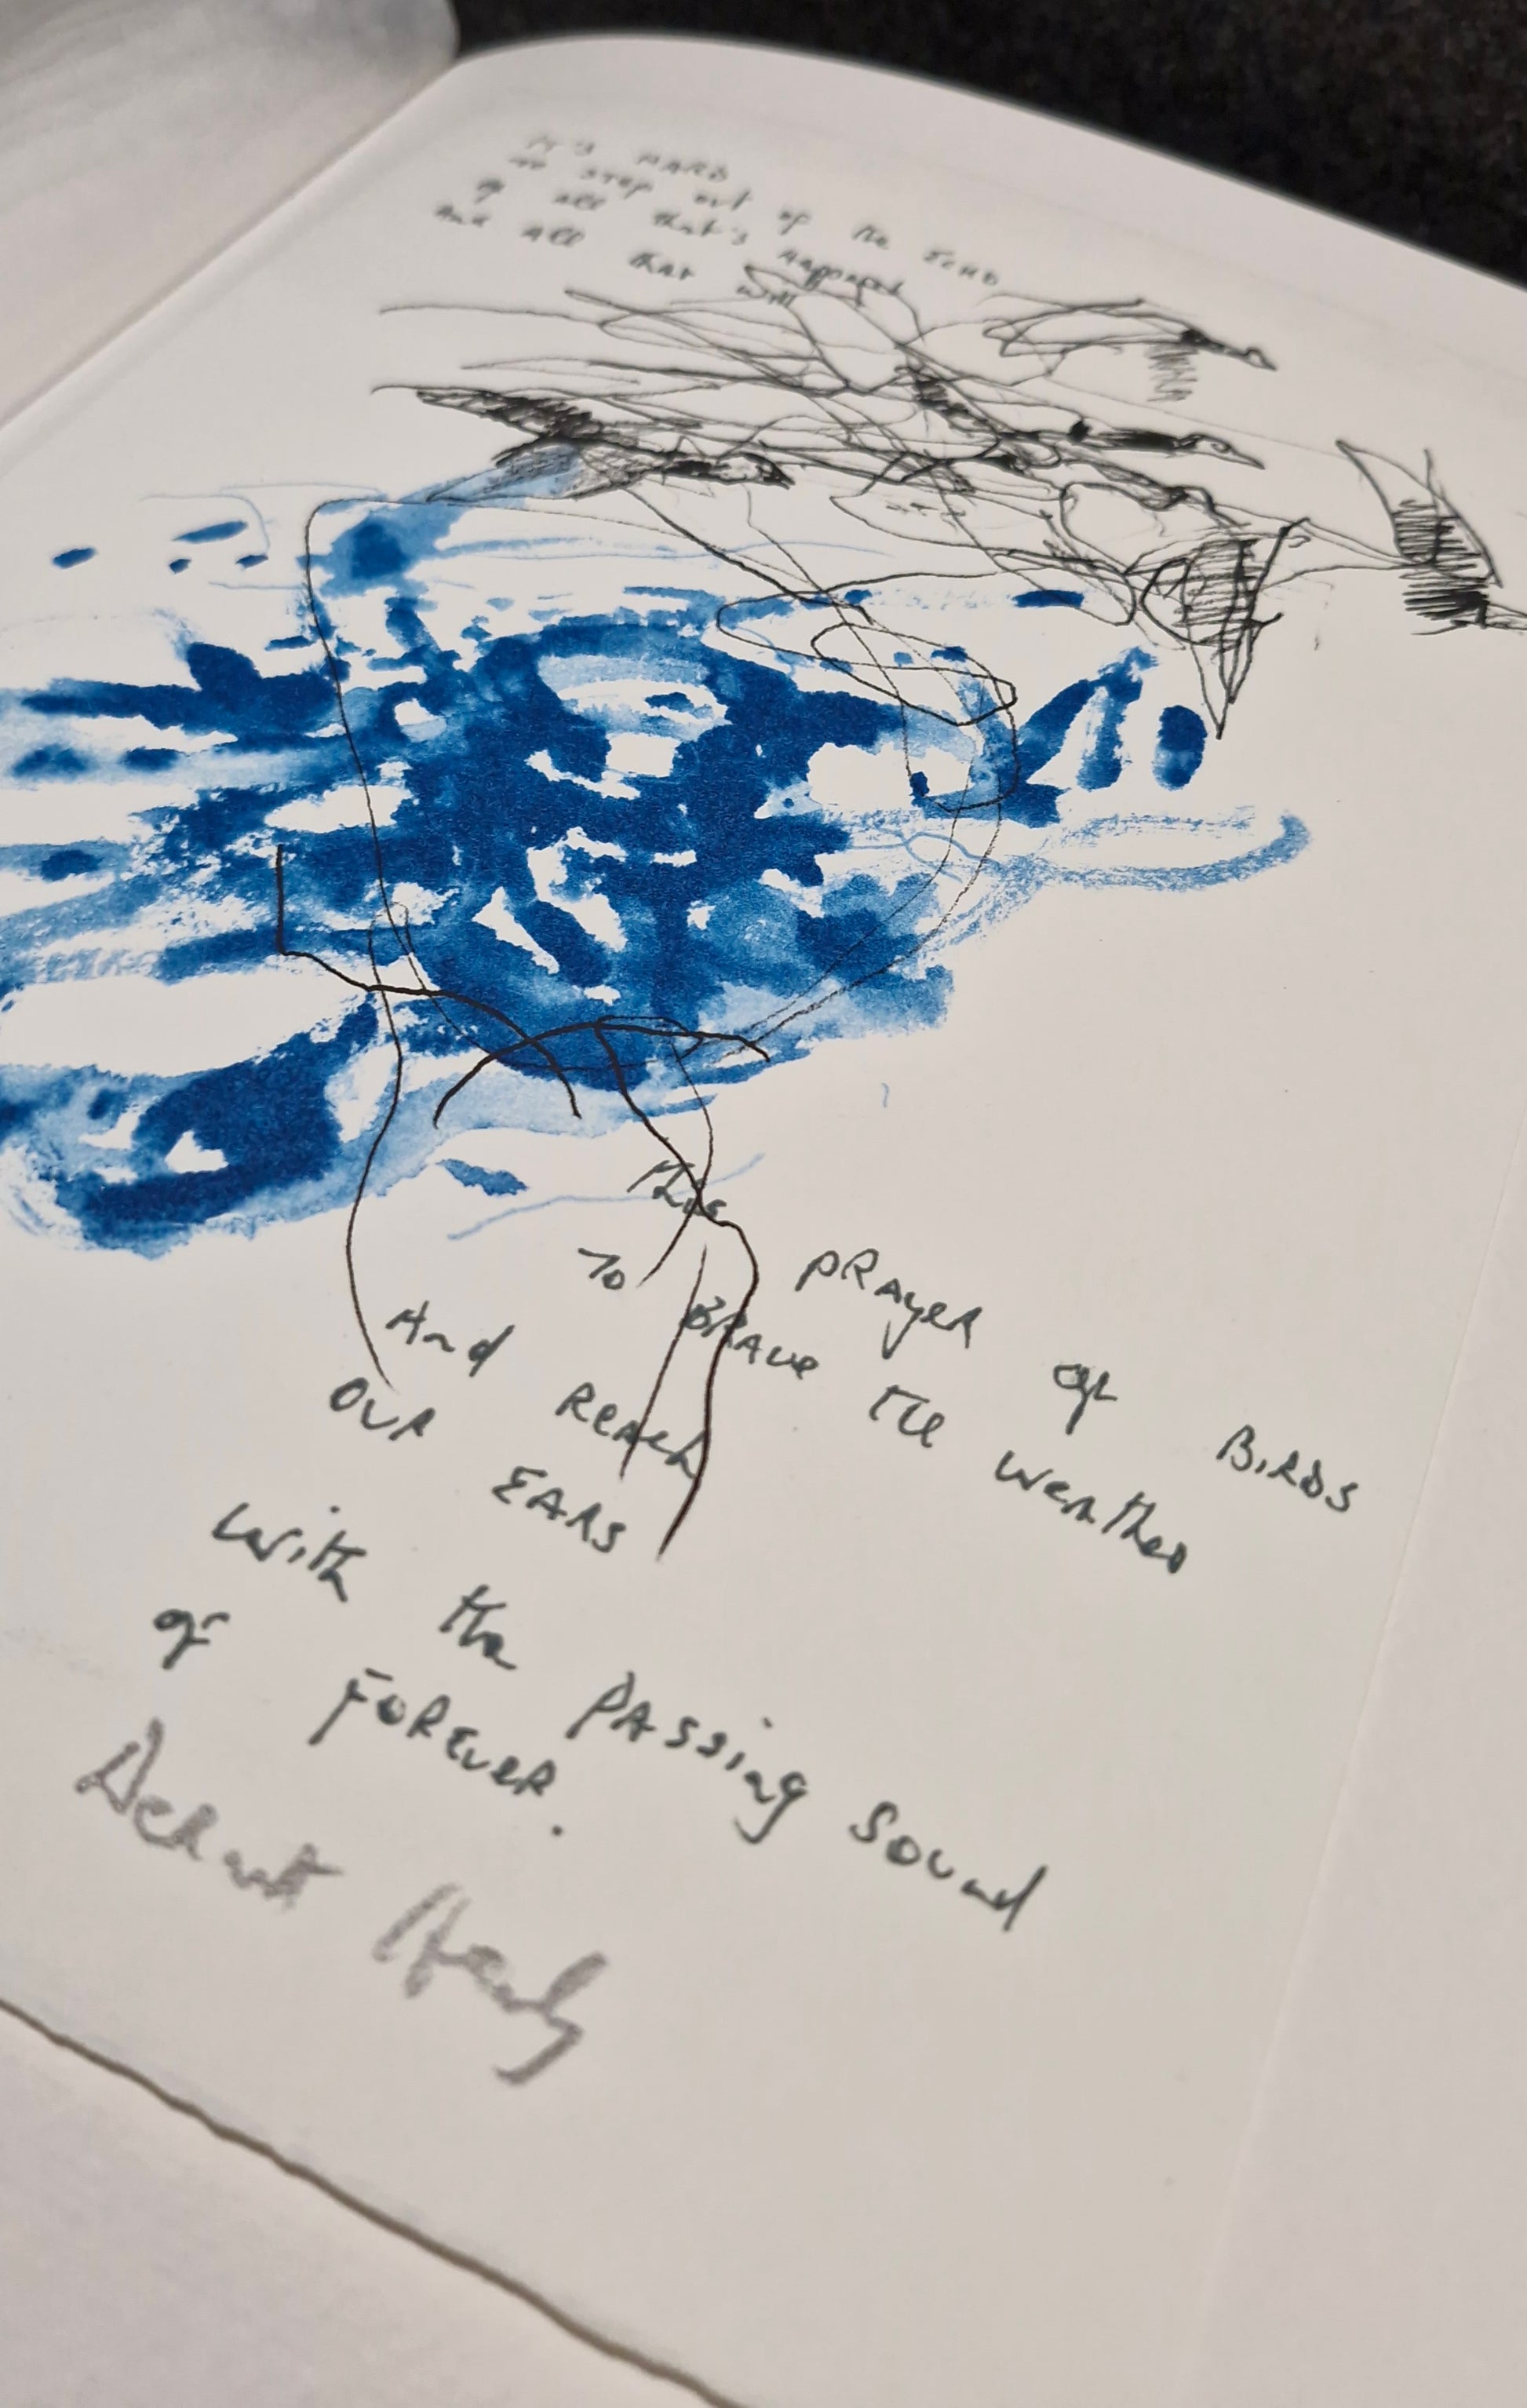 IT'S HARD
to STEP out of the ECHO
of all that's happened
And all that will
This PRAYER of BIRDS
To BRAVE the weather
And REACH
OUR EARS
with the PASSING SOUND
of FOREVER.
Dermot Healy